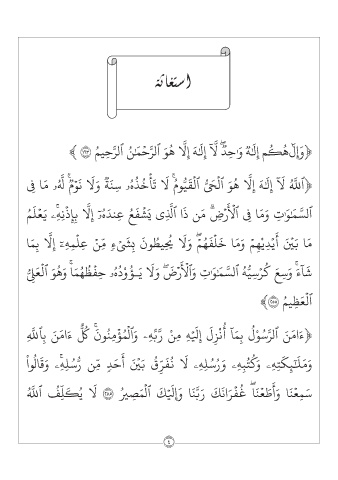 استغاثة
﴿وَإِلَٰهُكُمْ إِلَٰهٌ وَٰحِدٌ ۖ لَّآ إِلَٰهَ إِلَّا هُوَ ٱلرَّحْمَٰنُ ٱلرَّحِيمُ ١٦٣﴾
﴿ٱللَّهُ لَآ إِلَٰهَ إِلَّا هُوَ ٱلْحَىُّ ٱلْقَيُّومُ ۚ لَا تَأْخُذُهُۥ سِنَةٌ وَلَا نَوْمٌ ۚ لَّهُۥ مَا فِى
ٱلسَّمَٰوَٰتِ وَمَا فِى ٱلْأَرْضِ ۗ مَن ذَا ٱلَّذِى يَشْفَعُ عِندَهُۥٓ إِلَّا بِإِذْنِهِۦ ۚ يَعْلَمُ
مَا بَيْنَ أَيْدِيهِمْ وَمَا خَلْفَهُمْ ۖ وَلَا يُحِيطُونَ بِشَىْءٍ مِّنْ عِلْمِهِۦٓ إِلَّا بِمَا
شَآءَ ۚ وَسِعَ كُرْسِيُّهُ ٱلسَّمَٰوَٰتِ وَٱلْأَرْضَ ۖ وَلَا يَـُٔودُهُۥ حِفْظُهُمَا ۚ وَهُوَ ٱلْعَلِىُّ
ٱلْعَظِيمُ ٢٥٥﴾
﴿ءَامَنَ ٱلرَّسُولُ بِمَآ أُنزِلَ إِلَيْهِ مِن رَّبِّهِۦ وَٱلْمُؤْمِنُونَ ۚ كُلٌّ ءَامَنَ بِٱللَّهِ
وَمَلَٰٓئِكَتِهِۦ وَكُتُبِهِۦ وَرُسُلِهِۦ لَا نُفَرِّقُ بَيْنَ أَحَدٍ مِّن رُّسُلِهِۦ ۚ وَقَالُوا۟
سَمِعْنَا وَأَطَعْنَا ۖ غُفْرَانَكَ رَبَّنَا وَإِلَيْكَ ٱلْمَصِيرُ ٢٨٥ لَا يُكَلِّفُ ٱللَّهُ
٤